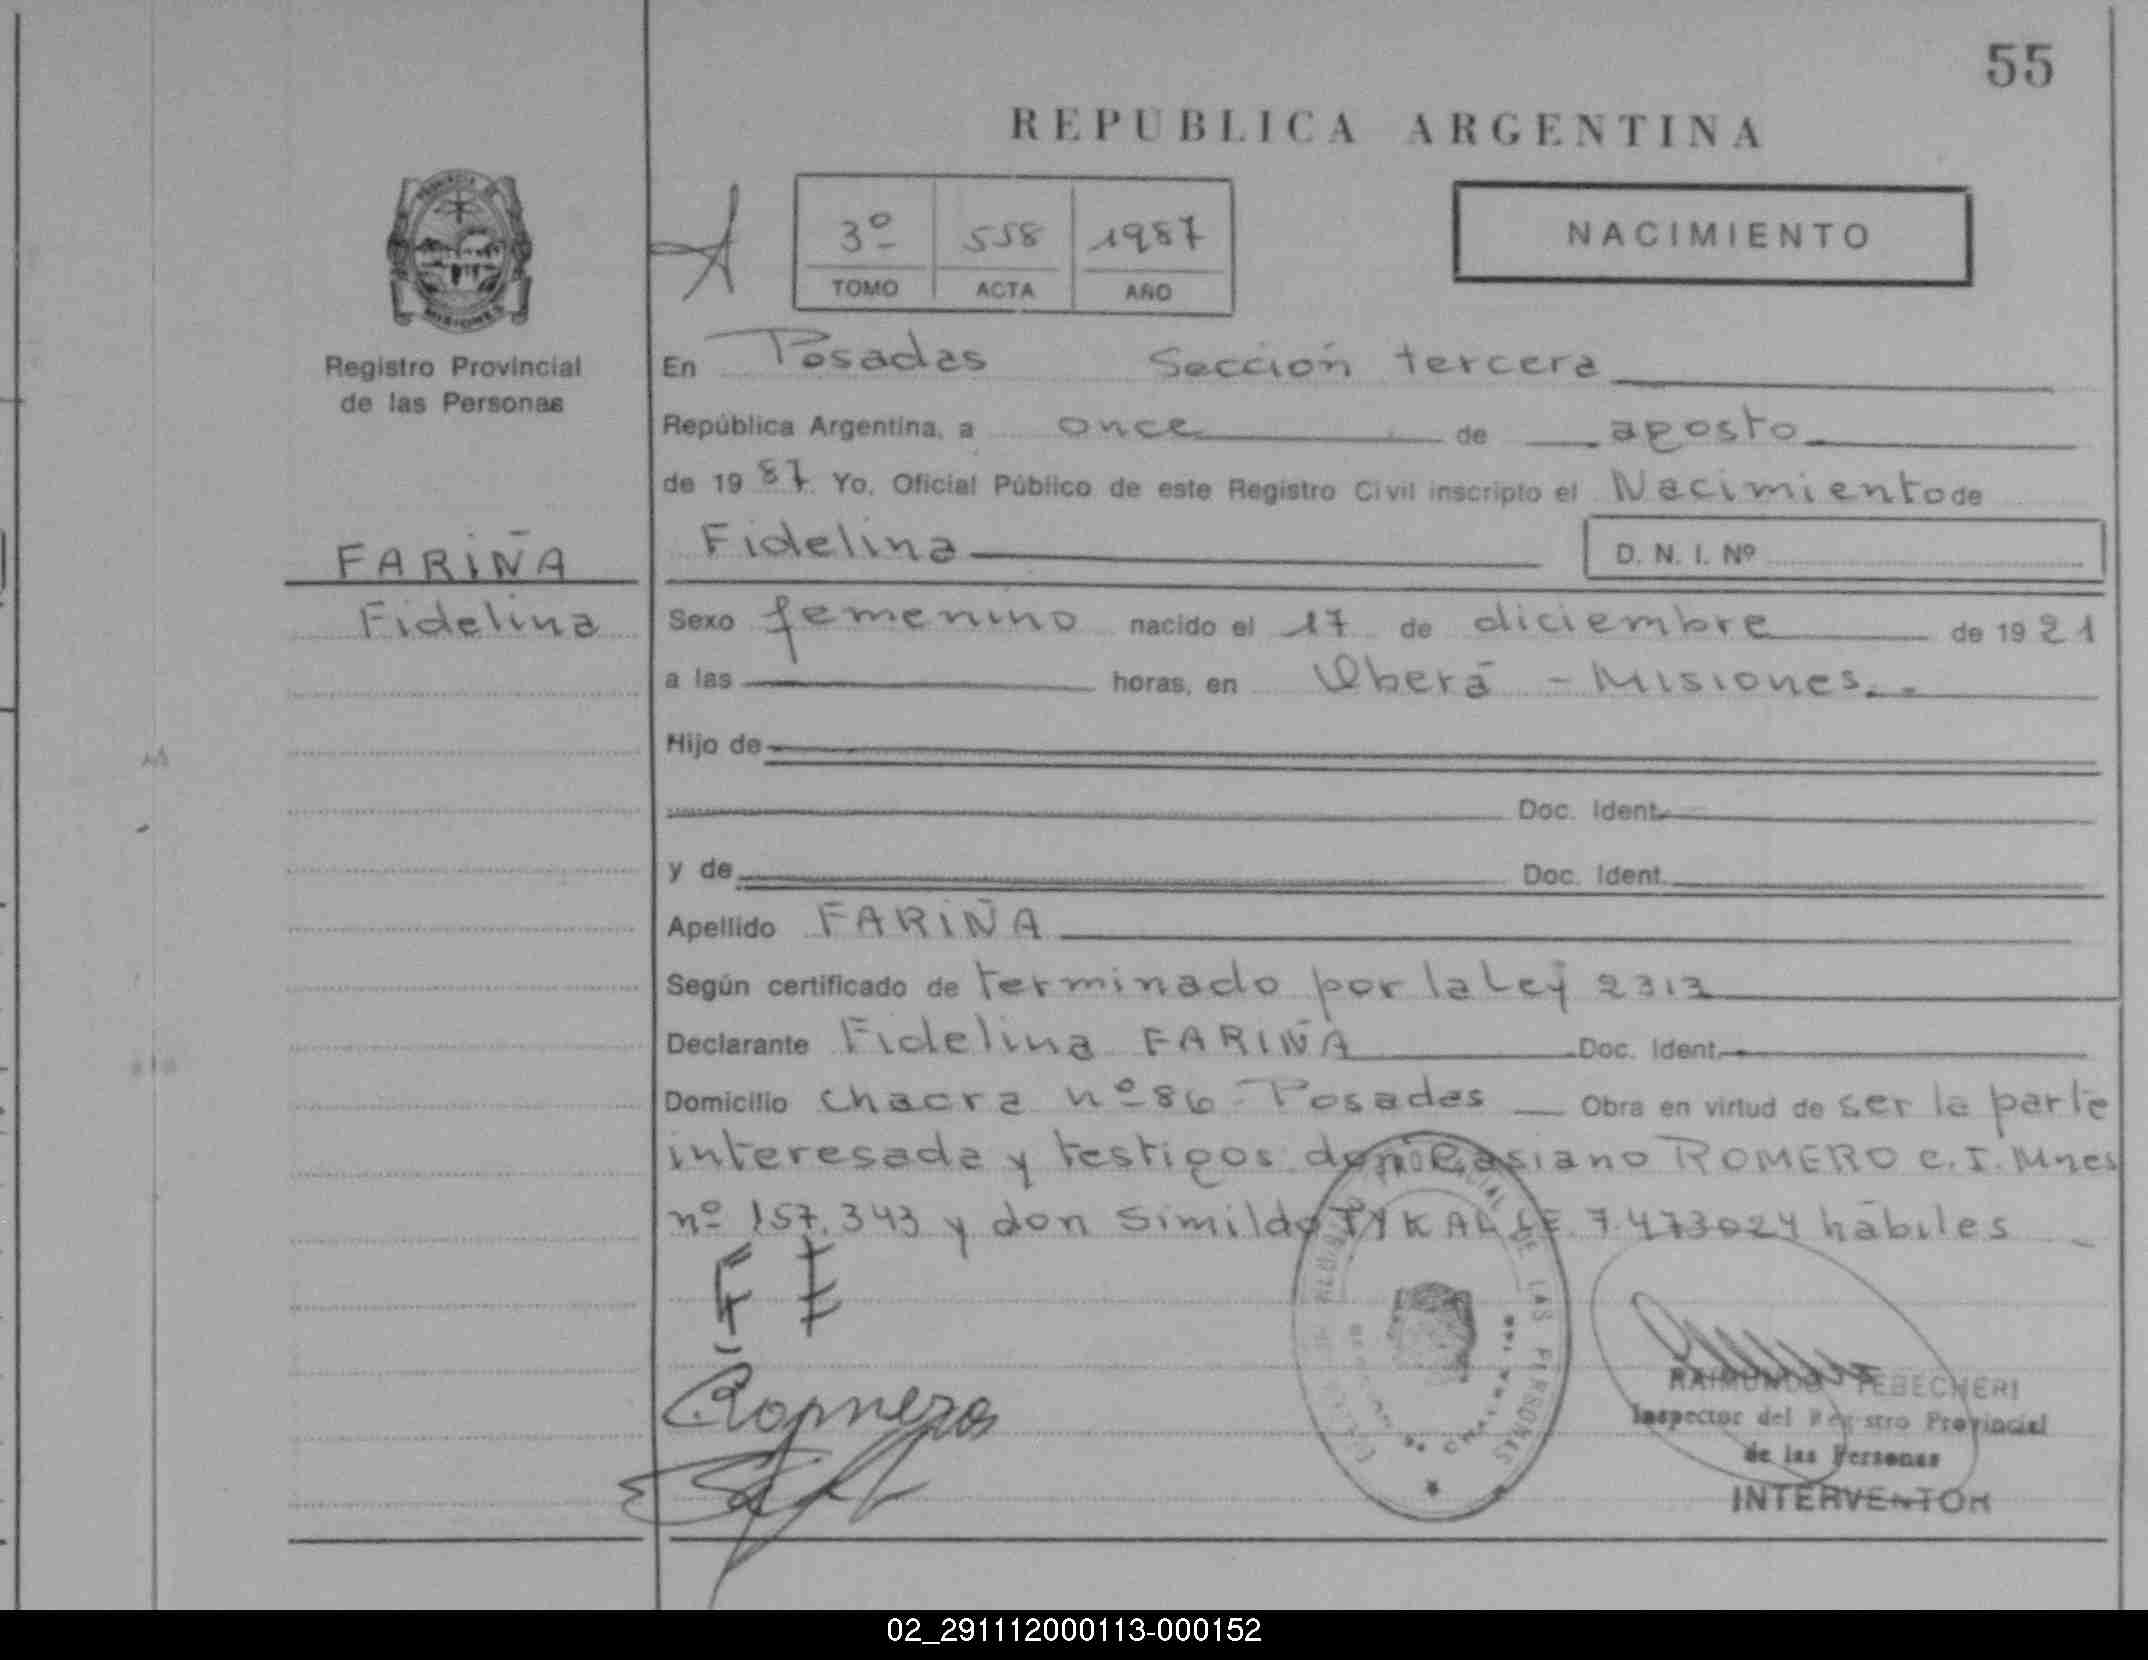 55
REPUBLICA ARGENTINA
3º 558 1987
TOMO ACTA AÑO
NACIMIENTO
Registro Provincial
de las Personas
FARIÑA
Fidelina
En Posadas Sección tercera
República Argentina, a once de agosto
de 1987. Yo, Oficial Público de este Registro Civil inscripto el Nacimiento de
Fidelina D. N. I. Nº
Sexo femenino nacido el 17 de diciembre de 1921
a las horas, en Oberá - Misiones.-
Hijo de
Doc. Ident.
y de Doc. Ident.
Apellido FARIÑA
Según certificado de terminado por la Ley 2313
Declarante Fidelina FARIÑA Doc. Ident.
Domicilio Chacra nº 86 - Posadas Obra en virtud de ser la parte
interesada y testigos don Casiano ROMERO C.I. Mnes
nº 157.343 y don Simildo TYKAL LE 7.473024 hábiles
RAIMUNDO TEBECHERI
Inspector del Registro Provincial
de las Personas
INTERVENTOR
02_291112000113-000152